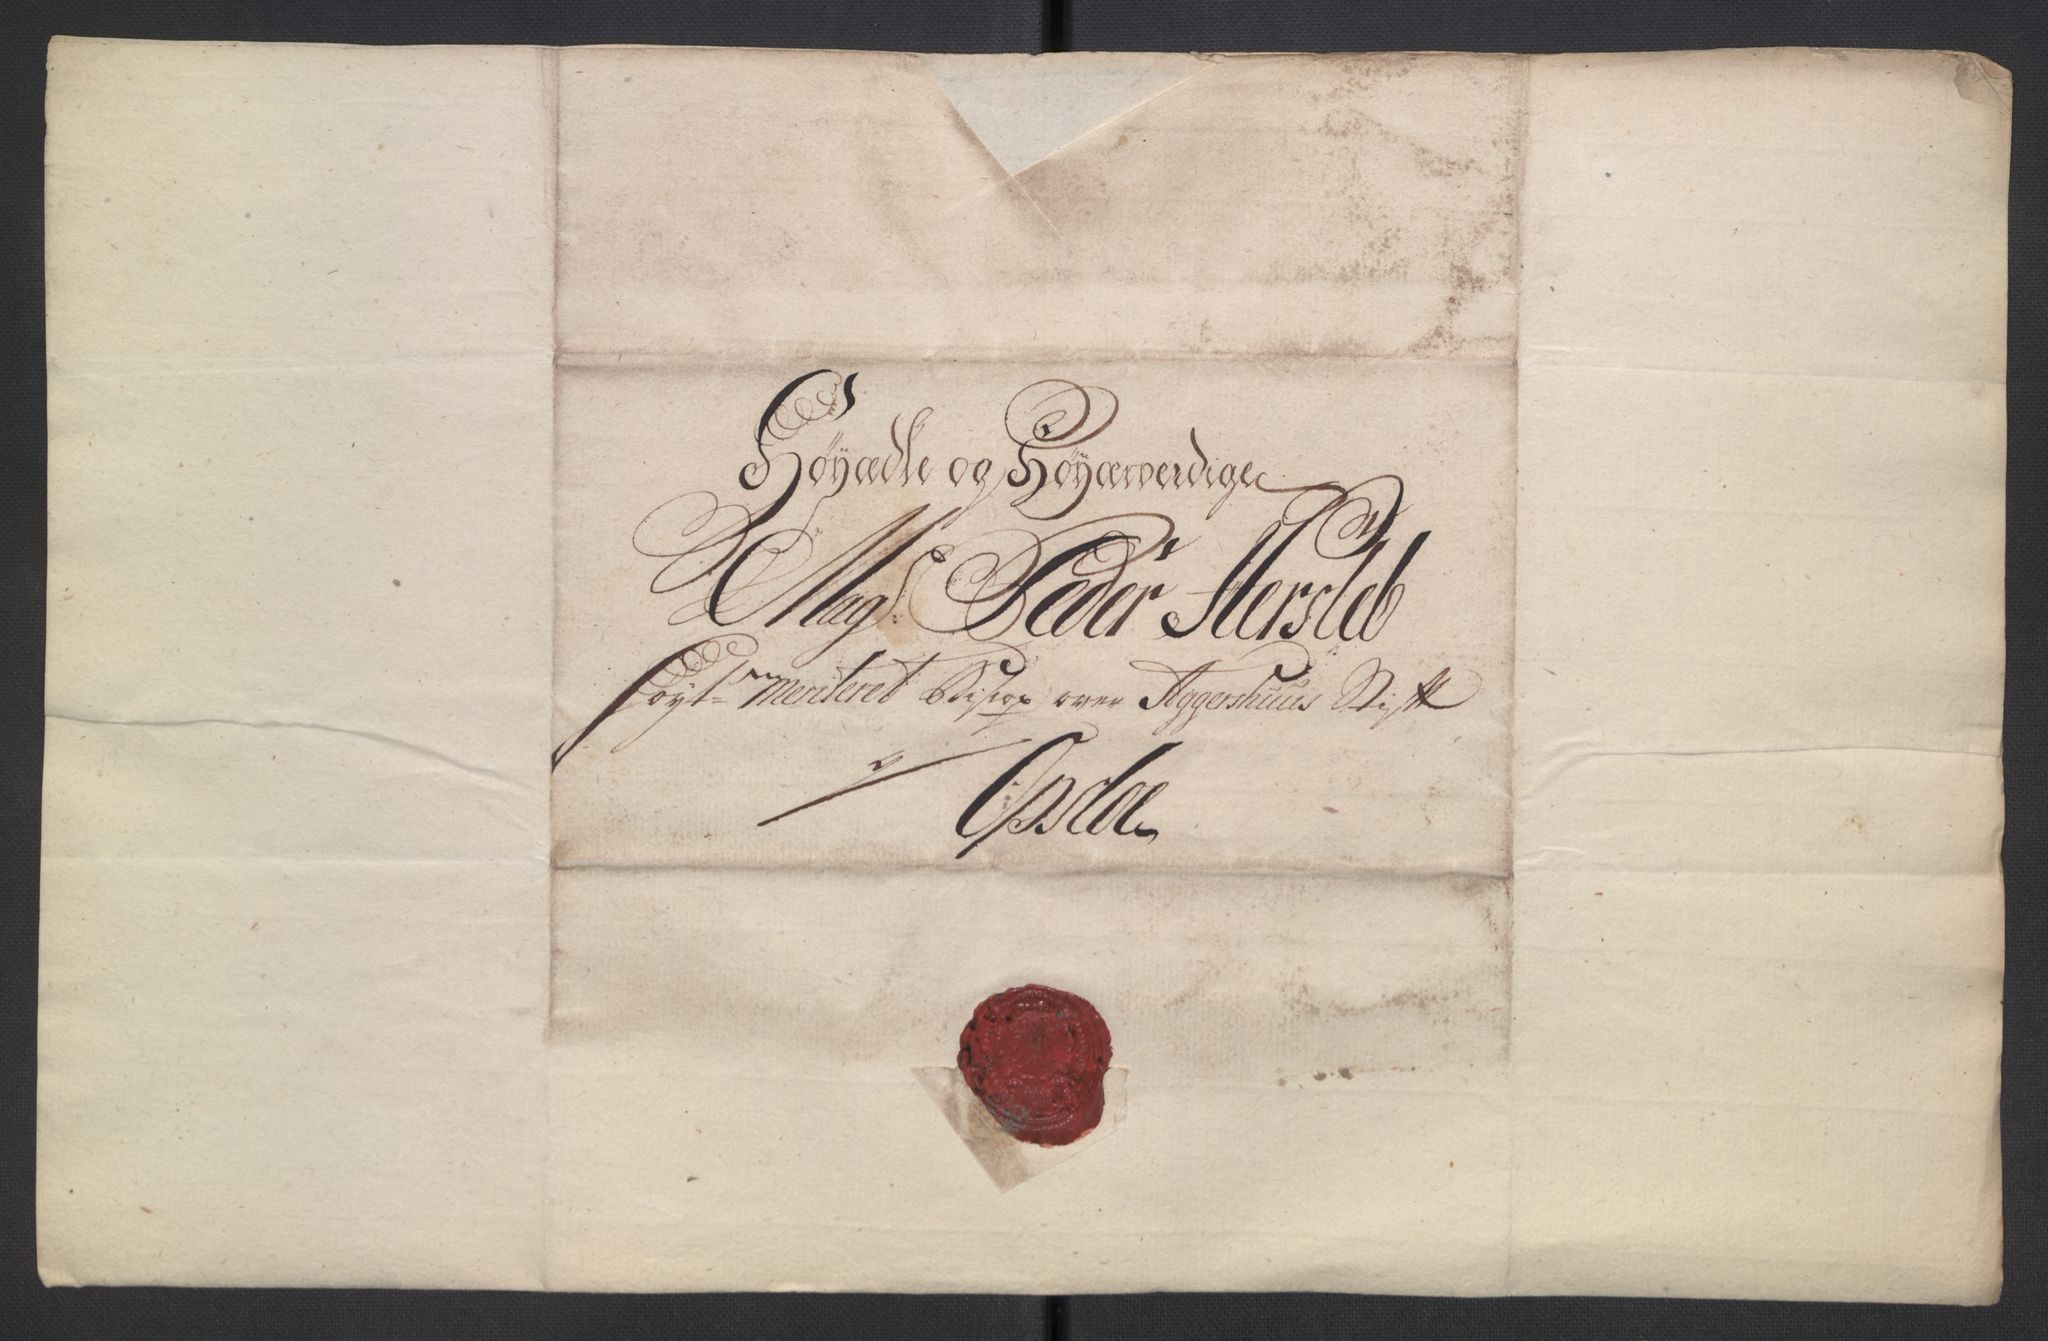 Høyædle og Høyærverdige
Mag.r Peder Hersleb
Høyt meriteret Biscop over Aggershuus Stift
Opsloe